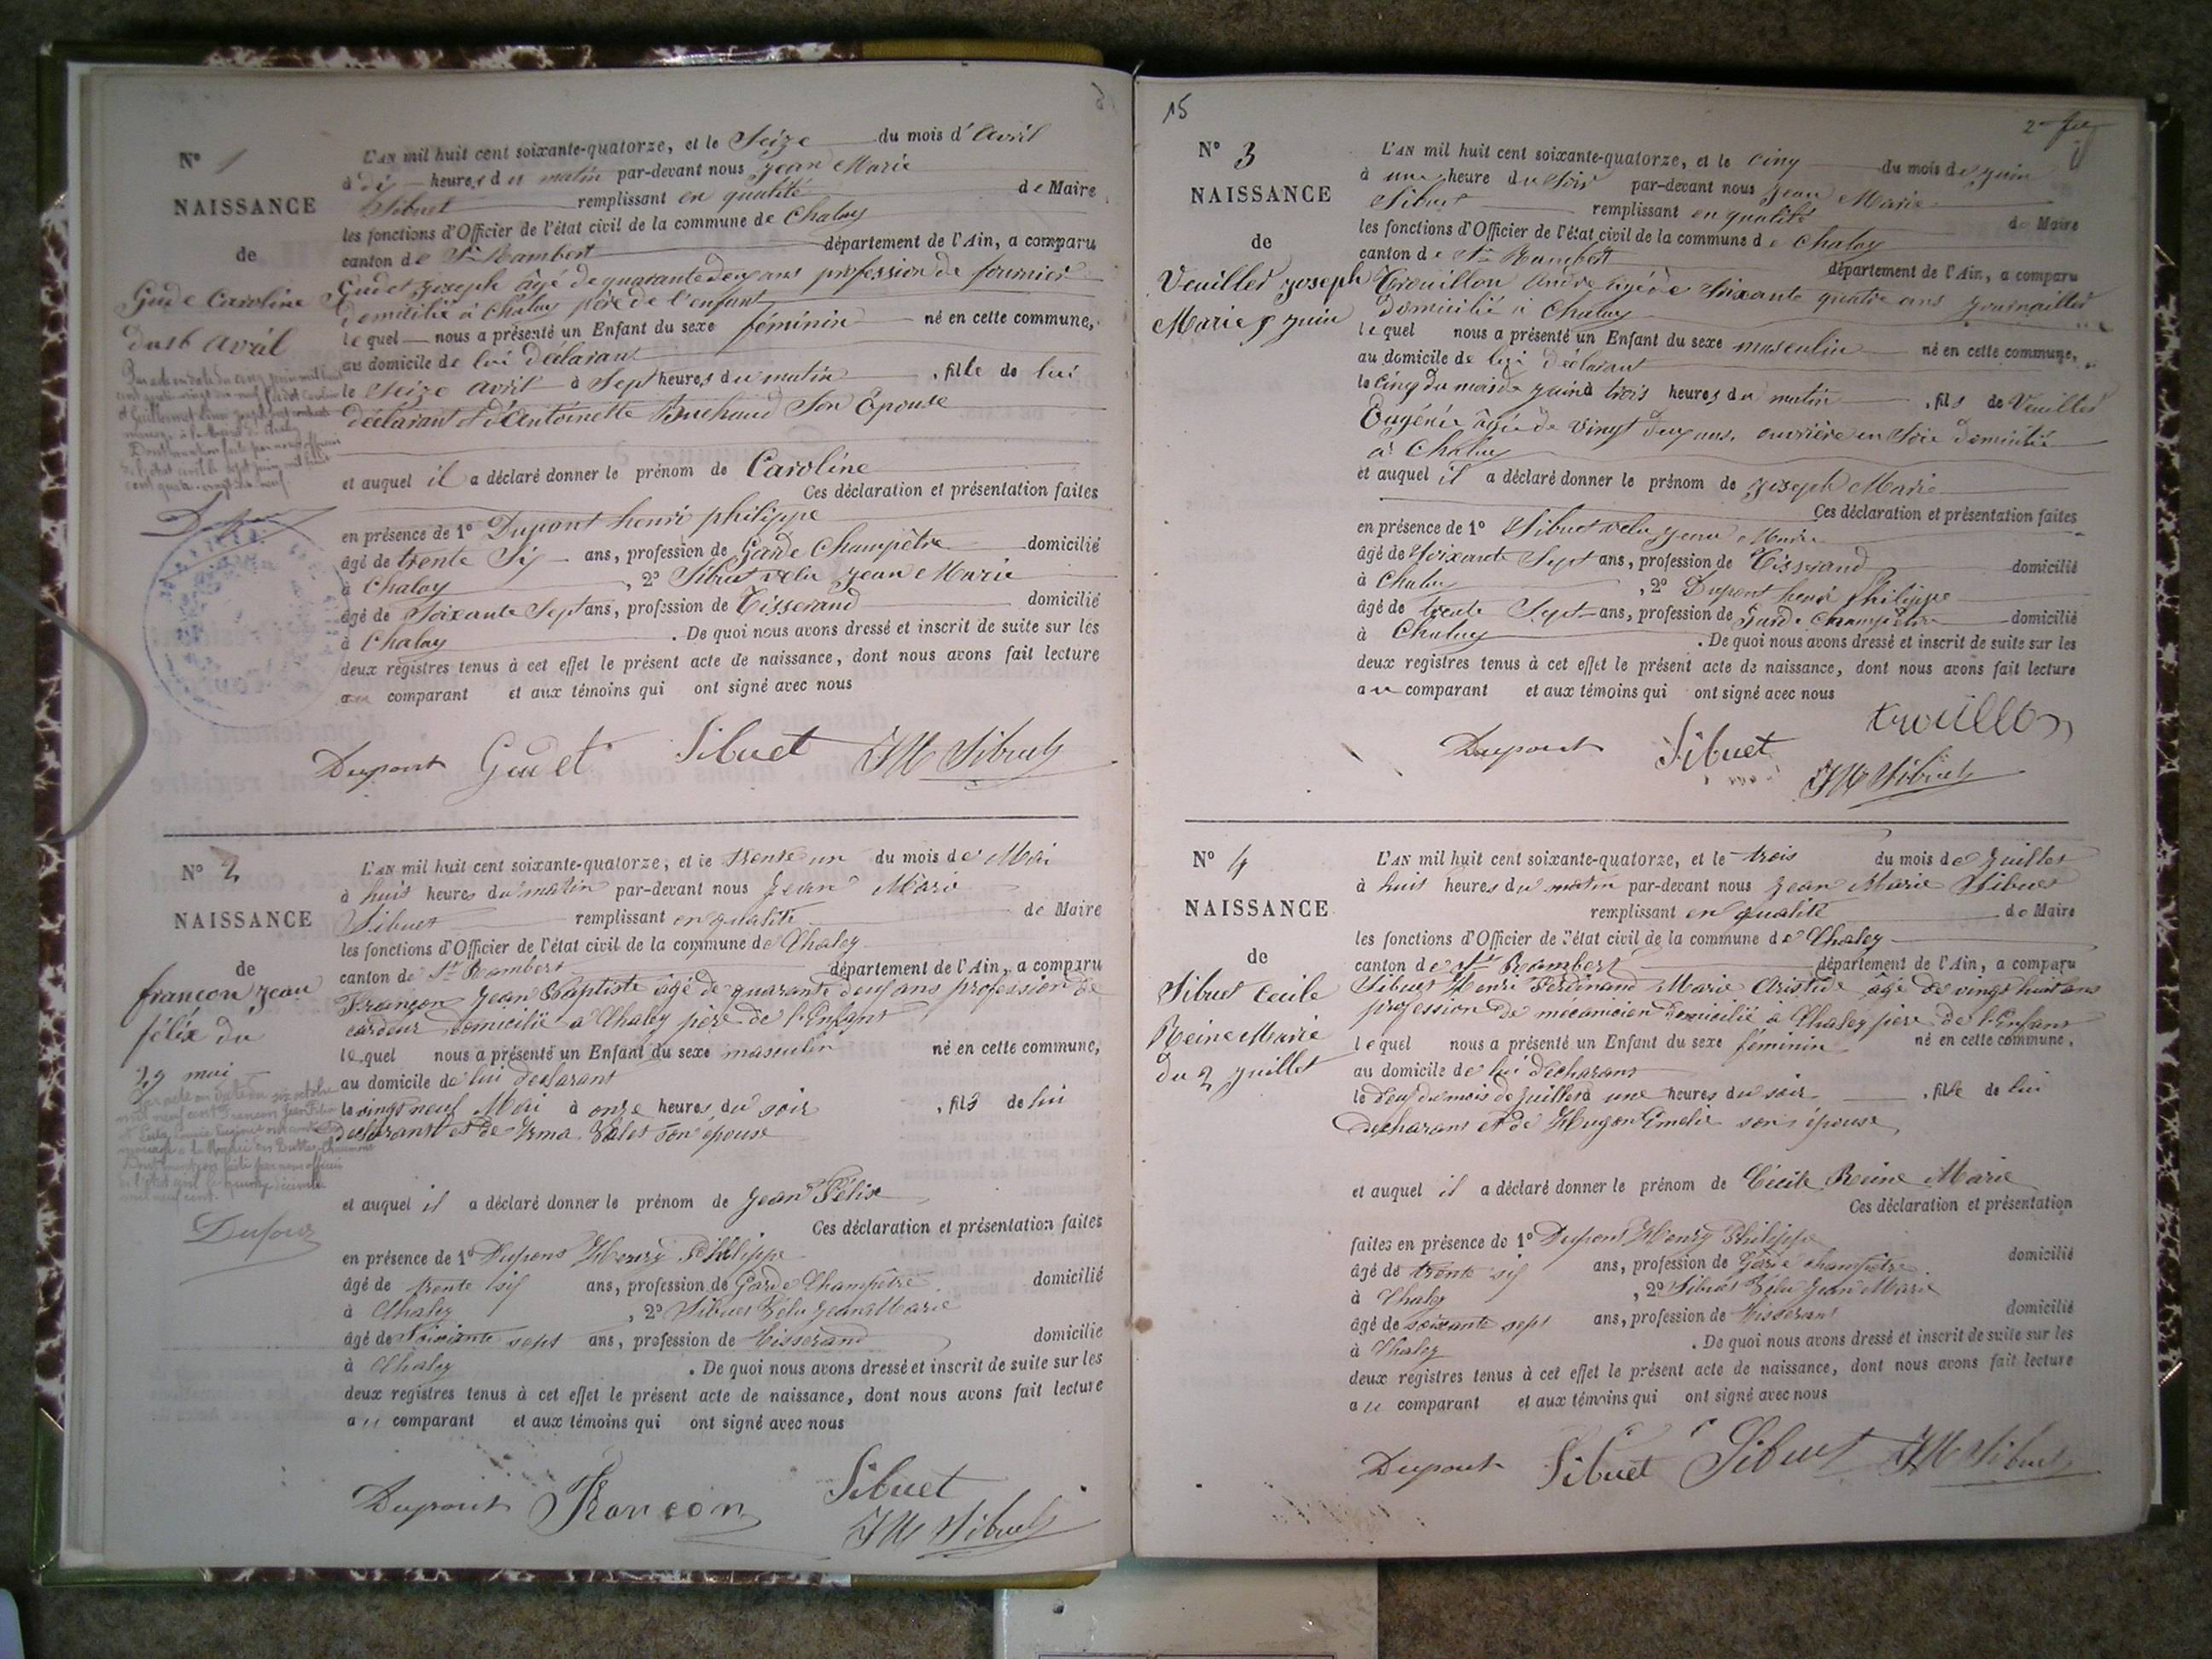 N° 1
NAISSANCE
de
Gudet Caroline
du 16 avril
L'AN mil huit cent soixante-quatorze, et le Seize du mois d'Avril
à dix heures du matin par-devant nous Jean Marie
Sibuet remplissant en qualité de Maire
les fonctions d'Officier de l'état civil de la commune de Chaley
canton de St Rambert département de l'Ain, a comparu
Gudet Joseph âgé de quarante deux ans profession de fournier
domicilié à Chaley père de l'enfant
lequel nous a présenté un Enfant du sexe féminin né en cette commune,
au domicile de lui déclarant
le seize avril à sept heures du matin, fille de lui
déclarant et d'Antoinette son Epouse
et auquel il a déclaré donner le prénom de Caroline
Ces déclaration et présentation faites
en présence de 1° Dupont henri philippe
âgé de trente six ans, profession de Garde Champêtre domicilié
à Chaley, 2° Sibuet velu Jean Marie
âgé de soixante sept ans, profession de Tisserand domicilié
à Chaley. De quoi nous avons dressé et inscrit de suite sur les
deux registres tenus à cet effet le présent acte de naissance, dont nous avons fait lecture
au comparant et aux témoins qui ont signé avec nous
Dupont Gudet Sibuet JM Sibuet
N° 2
NAISSANCE
de
françon Jean
félix du
29 mai
Dufour
L'AN mil huit cent soixante-quatorze, et le trente un du mois de Mai
à huit heures du matin par-devant nous Jean Marie
Sibuet remplissant en qualité de Maire
les fonctions d'Officier de l'état civil de la commune de Chaley
canton de St Rambert département de l'Ain, a comparu
Françon Jean Baptiste âgé de quarante deux ans profession de
cardeur domicilié à Chaley père de l'Enfant
lequel nous a présenté un Enfant du sexe masculin né en cette commune,
au domicile de lui declarant
le vingt neuf Mai à onze heures du soir, fils de lui
declarant et de Irma Valet son épouse
et auquel il a déclaré donner le prénom de Jean Félix
Ces déclaration et présentation faites
en présence de 1° Dupont Henry Philippe
âgé de trente six ans, profession de Garde Champêtre domicilié
à Chaley, 2° Sibuet Velu Jean Marie
âgé de Soixante sept ans, profession de Tisserand domicilié
à Chaley. De quoi nous avons dressé et inscrit de suite sur les
deux registres tenus à cet effet le présent acte de naissance, dont nous avons fait lecture
au comparant et aux témoins qui ont signé avec nous
Dupont Françon Sibuet
JM Sibuet
15
N° 3
NAISSANCE
de
Veuillet Joseph
Marie 5 Juin
L'AN mil huit cent soixante-quatorze, et le cinq du mois de Juin
à une heure du soir par-devant nous Jean Marie
Sibuet remplissant en qualité de Maire
les fonctions d'Officier de l'état civil de la commune de Chaley
canton de St Rambert département de l'Ain, a comparu
Trouillon André âgé de soixante quatre ans Journallier
domicilié à Chaley
lequel nous a présenté un Enfant du sexe masculin né en cette commune,
au domicile de lui déclarant
le cinq du mois de Juin à trois heures du matin, fils de Veuillet
Eugénie âgée de vingt deux ans, ouvrière en Soie domicilié
à Chaley
et auquel il a déclaré donner le prénom de Joseph Marie
Ces déclaration et présentation faites
en présence de 1° Sibuet velu Jean Marie
âgé de soixante sept ans, profession de Tisserand domicilié
à Chaley, 2° Dupont henri Philippe
âgé de trente sept ans, profession de Garde Champêtre domicilié
à Chaley. De quoi nous avons dressé et inscrit de suite sur les
deux registres tenus à cet effet le présent acte de naissance, dont nous avons fait lecture
au comparant et aux témoins qui ont signé avec nous
trouillon
Dupont Sibuet
JM Sibuet
N° 4
NAISSANCE
de
Sibuet Cecile
Reine Marie
du 2 Juillet
L'AN mil huit cent soixante-quatorze, et le trois du mois de Juillet
à huit heures du matin par-devant nous Jean Marie Sibuet
remplissant en qualité de Maire
les fonctions d'Officier de l'état civil de la commune de Chaley
canton de St Rambert département de l'Ain, a comparu
Sibuet Henri Ferdinand Marie Aristide âgé de vingt huit ans
profession de mécanicien domicilié à Chaley père de l'Enfant
lequel nous a présenté un Enfant du sexe féminin né en cette commune,
au domicile de lui declarant
le deux du mois de Juillet à une heures du soir, fille de lui
declarant et de Hugon Emelie son épouse
et auquel il a déclaré donner le prénom de Cécile Reine Marie
Ces déclaration et présentation
faites en présence de 1° Dupont Henry Philippe
âgé de trente six ans, profession de Garde champêtre domicilié
à Chaley, 2° Sibuet Velu Jean Marie
âgé de soixante sept ans, profession de Tisserant domicilié
à Chaley. De quoi nous avons dressé et inscrit de suite sur les
deux registres tenus à cet effet le présent acte de naissance, dont nous avons fait lecture
au comparant et aux témoins qui ont signé avec nous
Dupont Sibuet Sibuet JM Sibuet